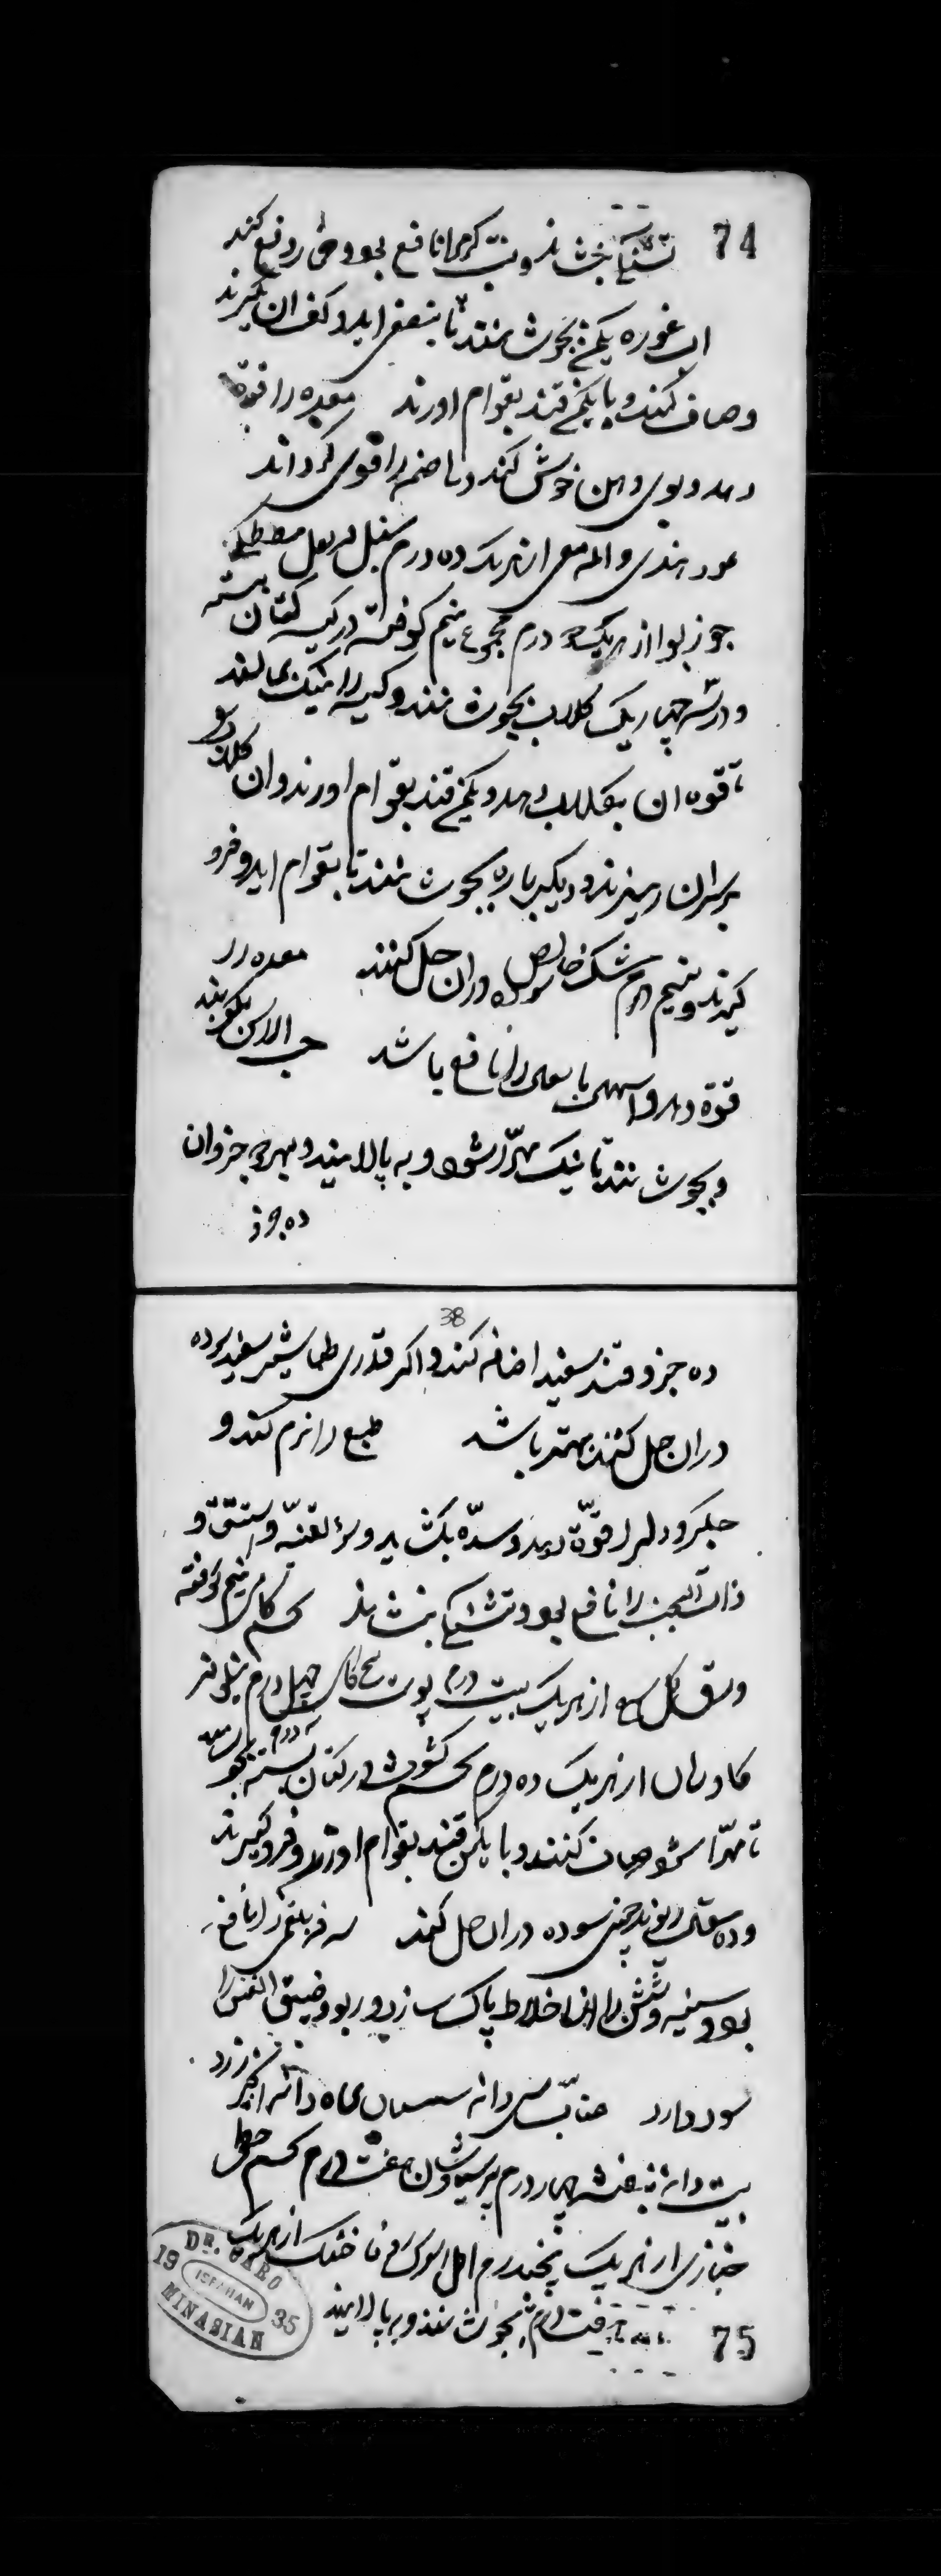 74
تشنگی بنشاند و تب گرم را نافع بود و قی را دفع کند
اب غوره یکمن بجوشانند تا بنصفی اید و کف ان بگیرند
و صاف کنند و با یکمن قند بقوام اورند معده را قوة
دهد و بوی دهن خوش کند و هاضمه را قوی گرداند
عود هندی و از هریک ده درم سنبل قرنفل مصطکی
جوزبوا از هریک درم مجموع نیم کوفته در کیسه کتان بسته
و در سه چهاریک گلاب بجوشانند و کیسه را نیک بمالند
تا قوه ان بگلاب دهد و یکمن قند بقوام اورند و ان گلاب
بر سر ان ریزند و دیگر باره بجوشانند تا بقوام اید و فرو
گیرند و نیم درم مشک خالص سوده در ان حل کنند معده را
قوة دهد و اسهال را نافع باشد حب الاس بکوبند
و بجوشانند تا نیک مهرّا شود و به پالایند و بهر جزو ان
ده جزو
38
ده جزو قند سفید اضافه کنند و اگر قدری طباشیر سفید سوده
در ان حل کنند بهتر باشد طبع را نرم کند و
جگر و دل را قوّة دهد و سدّه بگشاید و سوء القنیّه و استسقا و
ذات الجنب را نافع بود و تشنگی بنشاند تخم کاسنی نیم کوفته
ورق گل از هریک بیست درم پوست بیخ کاسنی چهل درم نیلوفر
کاوزبان از هریک ده درم تخم کشوث درم در کتان بسته بجوشانند
تا مهرّا شود و صاف کنند و با یکمن قند بقوام اورند و فرو گیرند
و ده مثقال ریوند چینی سوده در ان حل کنند سرفه بلغمی را نافع
بود و سینه و شش را از اخلاط پاک سازد و ربو و ضیق النفس را
سود دارد عنّاب سی دانه سپستان پنجاه دانه انجیر زرد
بیست دانه بنفشه چهار درم پرسیاوشان هفت درم تخم خطمی
خبازی از هریک پنجدرم اصل السوس زوفا خشک از هریک
هفت درم بجوشانند و بپالایند
75
DR. CARO
MINASIAN
ISFAHAN
19 35